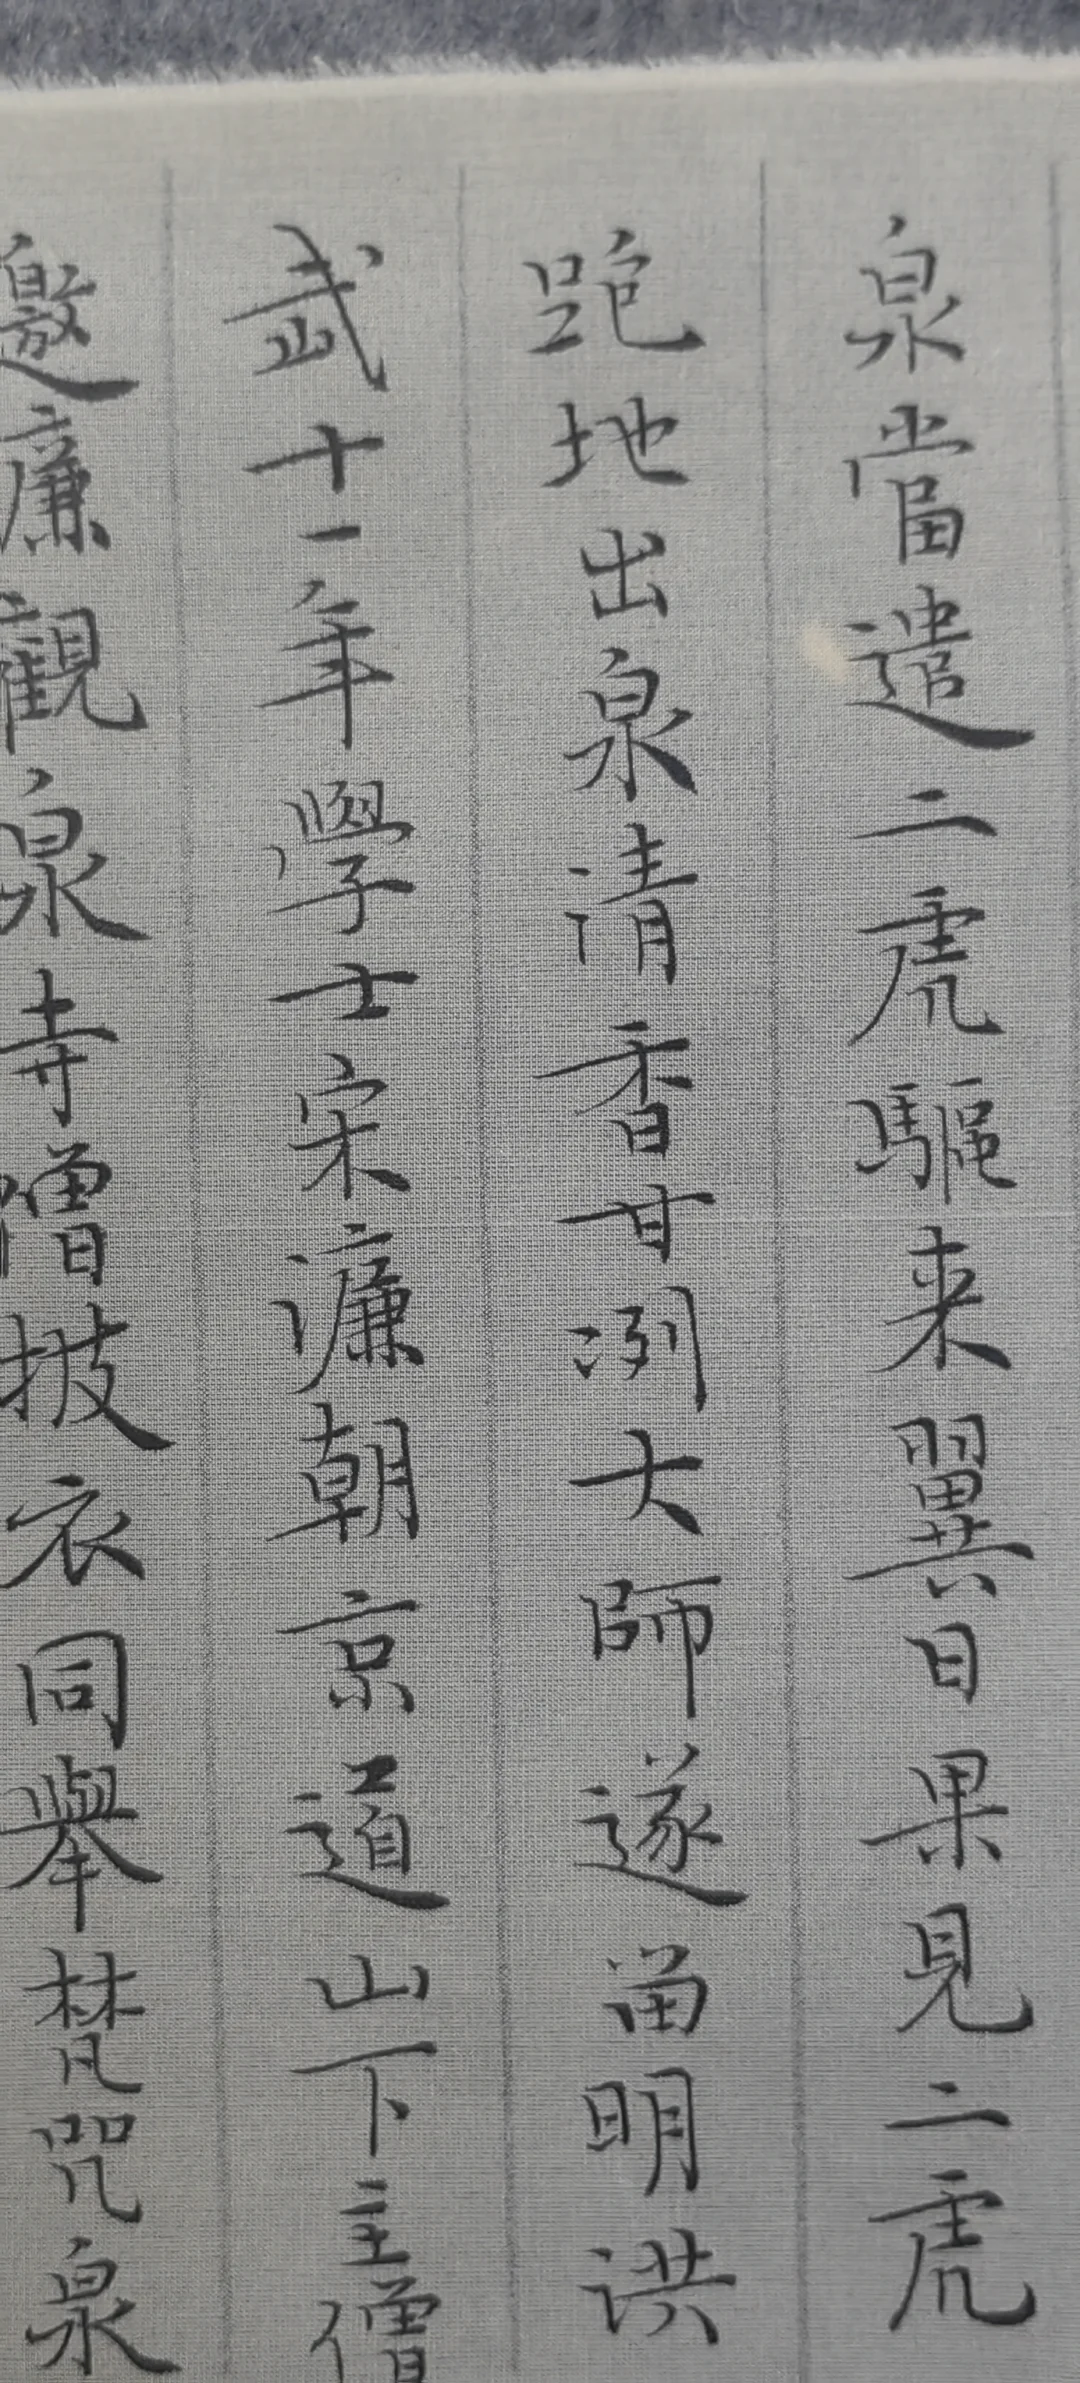 泉當遣二虎驅来翼日果見二虎
跑地出泉清香甘冽大師遂留明洪
武十一年學士宋濂朝京道山下主僧
邀濂觀泉寺僧披衣同舉梵咒泉